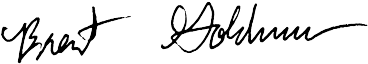 Brent Goldman